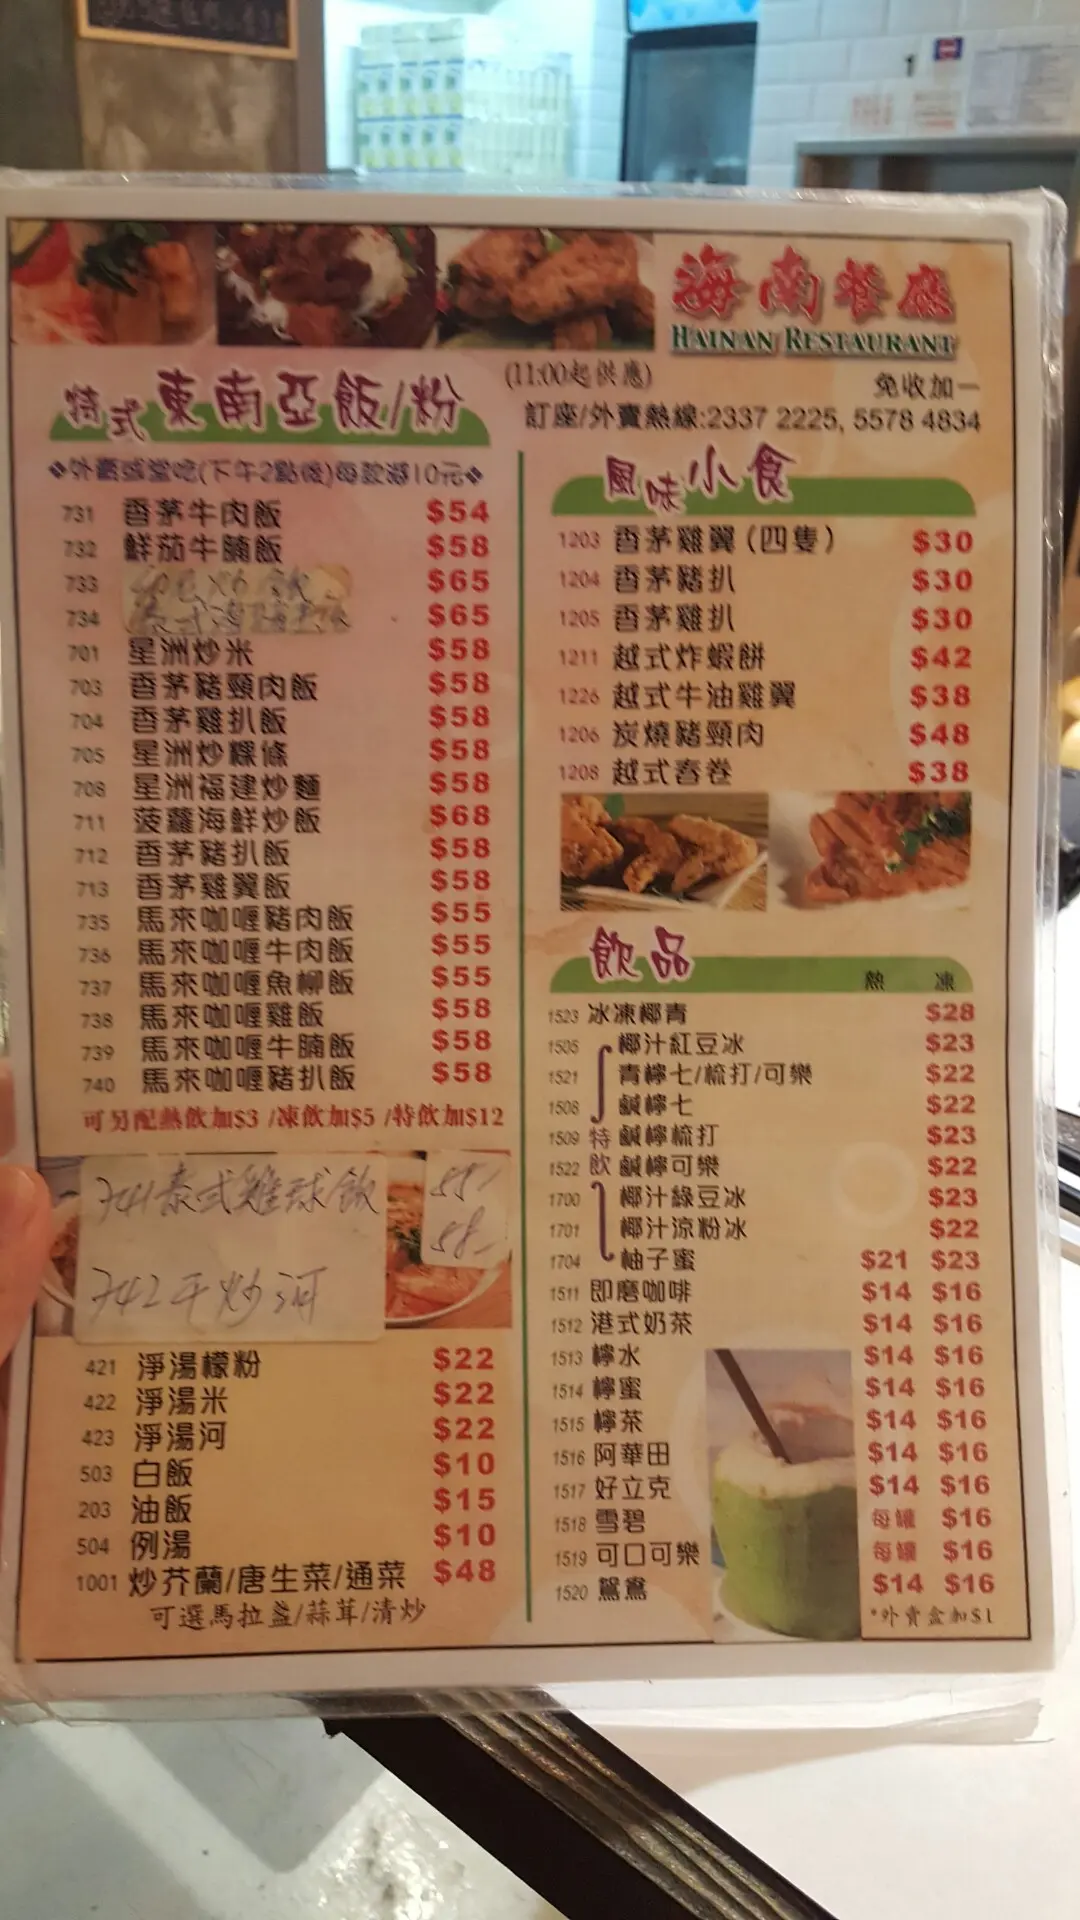 海南餐廳
HAINAN RESTAURANT
(11:00起供應)
免收加一
訂座/外賣熱線:2337 2225, 5578 4834
特式東南亞飯/粉
❖外賣或堂吃(下午2點後)每款減10元❖
731 香茅牛肉飯 $54
732 鮮茄牛腩飯 $58
733 炒飯 $65
734 $65
701 星洲炒米 $58
703 香茅豬頸肉飯 $58
704 香茅雞扒飯 $58
705 星洲炒粿條 $58
708 星洲福建炒麵 $58
711 菠蘿海鮮炒飯 $68
712 香茅豬扒飯 $58
713 香茅雞翼飯 $58
735 馬來咖喱豬肉飯 $55
736 馬來咖喱牛肉飯 $55
737 馬來咖喱魚柳飯 $55
738 馬來咖喱雞飯 $58
739 馬來咖喱牛腩飯 $58
740 馬來咖喱豬扒飯 $58
可另配熱飲加$3 /凍飲加$5 /特飲加$12
741泰式雞球飯 55-
742干炒河 58-
421 淨湯檬粉 $22
422 淨湯米 $22
423 淨湯河 $22
503 白飯 $10
203 油飯 $15
504 例湯 $10
1001 炒芥蘭/唐生菜/通菜 $48
可選馬拉盞/蒜茸/清炒
風味小食
1203 香茅雞翼(四隻) $30
1204 香茅豬扒 $30
1205 香茅雞扒 $30
1211 越式炸蝦餅 $42
1226 越式牛油雞翼 $38
1206 炭燒豬頸肉 $48
1208 越式春卷 $38
飲品
熱 凍
1523 冰凍椰青 $28
1505 椰汁紅豆冰 $23
1521 青檸七/梳打/可樂 $22
1508 鹹檸七 $22
1509 特 鹹檸梳打 $23
1522 飲 鹹檸可樂 $22
1700 椰汁綠豆冰 $23
1701 椰汁涼粉冰 $22
1704 柚子蜜 $21 $23
1511 即磨咖啡 $14 $16
1512 港式奶茶 $14 $16
1513 檸水 $14 $16
1514 檸蜜 $14 $16
1515 檸茶 $14 $16
1516 阿華田 $14 $16
1517 好立克 $14 $16
1518 雪碧 每罐 $16
1519 可口可樂 每罐 $16
1520 鴛鴦 $14 $16
*外賣盒加$1